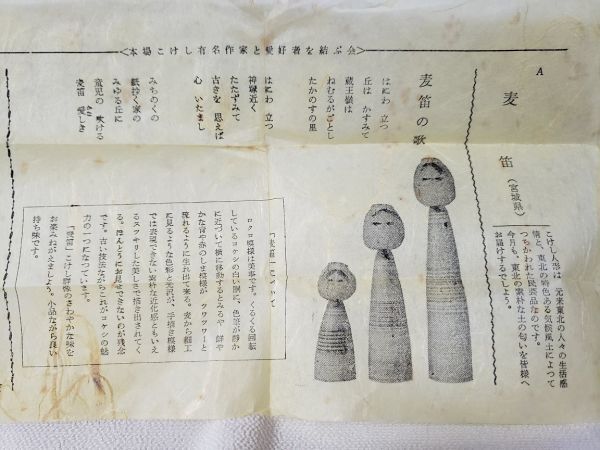 <本場こけし有名作家と愛好者を結ぶ会>
A
麦笛(宮城県)
こけし人形は、元来東北の人々の生活感
情と、東北の特色ある気候風土によつて
つちかわれた民芸品なのです。
今月も、東北の素朴な土の匂いを皆様へ
お届けするでしよう。
麦笛の歌
はにわ 立つ
丘は かすみて
蔵王嶺は
ねむるがごとし
たかのすの里
はにわ 立つ
神塚近く
たたずみて
古きを 思えば
心 いたまし
みちのくの
紙抄く家の
みゆる丘に
童児の 吹ける
麦笛 愛しき
「麦笛」について
ロクロ模様は美事です。くるくる回転
しているコケシの白い胴に、色筆が静か
に近づいて横に移動するとみるや 鮮や
かな青や赤のしま模様が、ツワツワーと
流れるように生れ出て来る。麦から細工
に見るような色彩と光沢が、手描き模様
では表現できない素朴な近化感ともいえ
るスツキリした美しさで描き出されてく
る。ほんとうにお見せできないのが残念
です。古い技法ながらこれがコケシの魅
力の一つになつています。
「麦笛」こけし群像のさわやかな味を
お楽みねがえましよう。小品ながら良い
持ち味です。